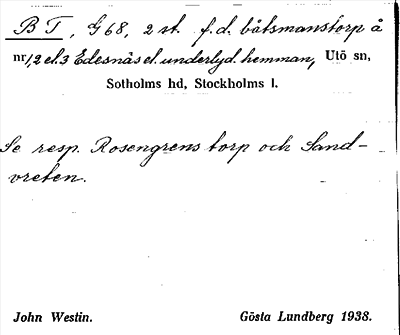 B T, G 68, 2 st. f.d. båtsmanstorp å
nr 1, 2 el. 3 Edesnäs el. underlyd. hemman, Utö sn,
Sotholms hd, Stockholms l.
Se resp. Rosengrens torp och Sand-
vreten.
John Westin. Gösta Lundberg 1938.